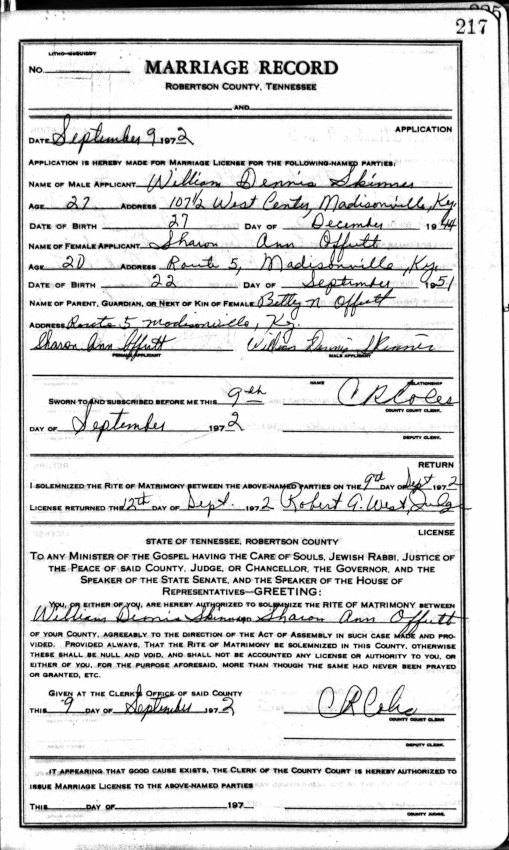 217
LITHO-MCQUIDDY
No.
MARRIAGE RECORD
ROBERTSON COUNTY, TENNESSEE
AND
APPLICATION
DATE September 9 1972
APPLICATION IS HEREBY MADE FOR MARRIAGE LICENSE FOR THE FOLLOWING-NAMED PARTIES:
NAME OF MALE APPLICANT William Dennis Skinner
AGE 27 ADDRESS 107½ West Center, Madisonville, Ky.
DATE OF BIRTH 27 DAY OF December 1944
NAME OF FEMALE APPLICANT Sharon Ann Offutt
AGE 20 ADDRESS Route 5, Madisonville, Ky.
DATE OF BIRTH 22 DAY OF September 1951
NAME OF PARENT, GUARDIAN, OR NEXT OF KIN OF FEMALE Betty N Offutt
ADDRESS Route 5 Madisonville, Ky.
Sharon Ann Offutt William Dennis Skinner
FEMALE APPLICANT MALE APPLICANT
NAME RELATIONSHIP
SWORN TO AND SUBSCRIBED BEFORE ME THIS 9th C R Coles
COUNTY COURT CLERK.
DAY OF September 1972
DEPUTY CLERK.
RETURN
I SOLEMNIZED THE RITE OF MATRIMONY BETWEEN THE ABOVE-NAMED PARTIES ON THE 9th DAY OF Sept 1972
LICENSE RETURNED THE 12th DAY OF Sept. 1972 Robert G. West, Judge
LICENSE
STATE OF TENNESSEE, ROBERTSON COUNTY
TO ANY MINISTER OF THE GOSPEL HAVING THE CARE OF SOULS, JEWISH RABBI, JUSTICE OF
THE PEACE OF SAID COUNTY, JUDGE, OR CHANCELLOR, THE GOVERNOR, AND THE
SPEAKER OF THE STATE SENATE, AND THE SPEAKER OF THE HOUSE OF
REPRESENTATIVES—GREETING:
YOU, OR EITHER OF YOU, ARE HEREBY AUTHORIZED TO SOLEMNIZE THE RITE OF MATRIMONY BETWEEN
William Dennis Skinner AND Sharon Ann Offutt
OF YOUR COUNTY, AGREEABLY TO THE DIRECTION OF THE ACT OF ASSEMBLY IN SUCH CASE MADE AND PRO-
VIDED. PROVIDED ALWAYS, THAT THE RITE OF MATRIMONY BE SOLEMNIZED IN THIS COUNTY, OTHERWISE
THESE SHALL BE NULL AND VOID, AND SHALL NOT BE ACCOUNTED ANY LICENSE OR AUTHORITY TO YOU, OR
EITHER OF YOU, FOR THE PURPOSE AFORESAID, MORE THAN THOUGH THE SAME HAD NEVER BEEN PRAYED
OR GRANTED, ETC.
GIVEN AT THE CLERK'S OFFICE OF SAID COUNTY
THIS 9 DAY OF September 1972 C R Coles
COUNTY COURT CLERK
DEPUTY CLERK.
IT APPEARING THAT GOOD CAUSE EXISTS, THE CLERK OF THE COUNTY COURT IS HEREBY AUTHORIZED TO
ISSUE MARRIAGE LICENSE TO THE ABOVE-NAMED PARTIES
THIS DAY OF 197
COUNTY JUDGE.